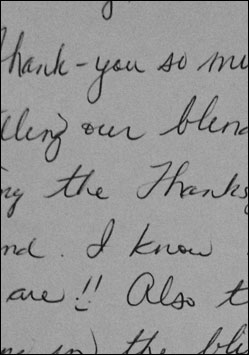 Thank-you so mu
lling our blend
ng the Thanksg
nd. I know
are!! Also t
ng in the bli